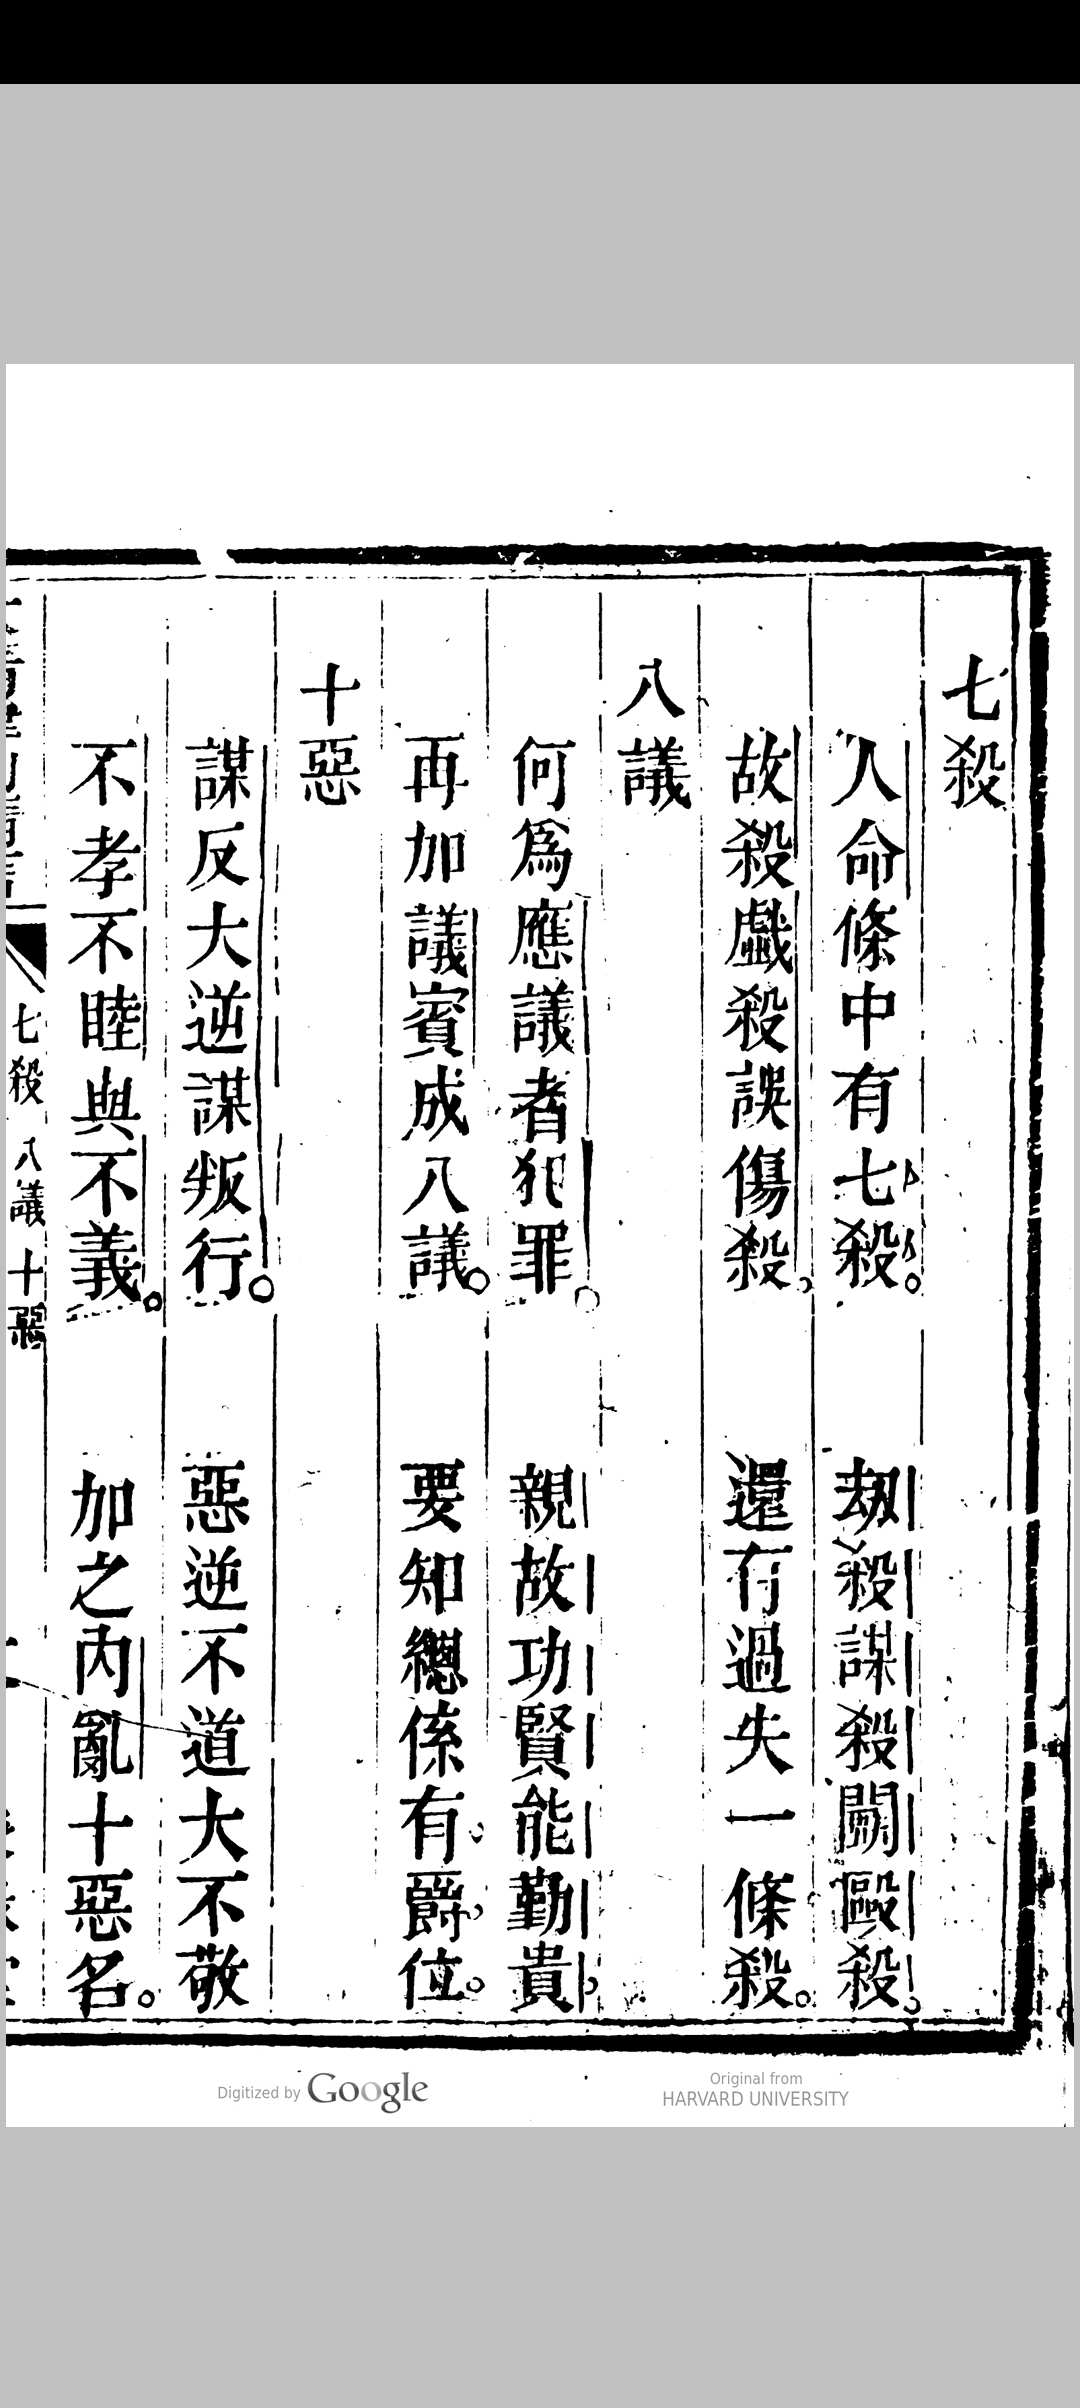 七殺
人命條中有七殺。 劫殺謀殺鬬毆殺
故殺戲殺誤傷殺 還有過失一條殺。
八議
何爲應議者犯罪。 親故功賢能勤貴
再加議賓成八議。 要知總係有爵位。
十惡
謀反大逆謀叛行。 惡逆不道大不敬
不孝不睦與不義。 加之內亂十惡名。
七殺 八議 十惡
Digitized by Google
Original from
HARVARD UNIVERSITY